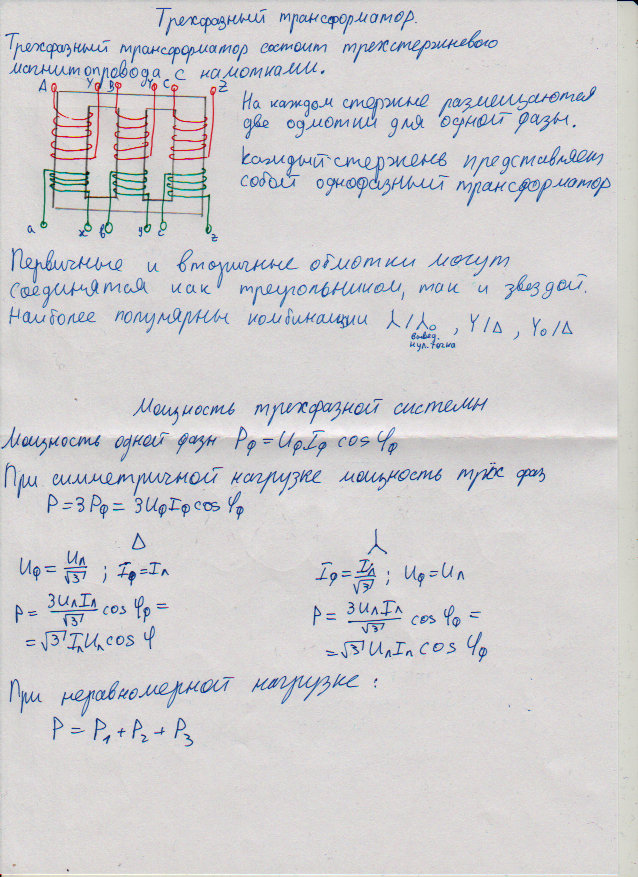 Трехфазный трансформатор.
Трехфазный трансформатор состоит трехстержневого
магнитопровода с намотками.
A Y B Y C Z
На каждом стержне размещаются
две обмотки для одной фазы.
Каждый стержень представляет
собой однофазный трансформатор
a x в y c z
Первичные и вторичные обмотки могут
соединятся как треугольником, так и звездой.
Наиболее популярны комбинации ⅄/⅄₀, Y/Δ, Y₀/Δ
вывед.
нул. точка
Мощность трехфазной системы
Мощность одной фазы Pф = UфIф cos φф
При симметричной нагрузке мощность трёх фаз
P = 3Pф = 3UфIф cos φф
Δ ⅄
Uф = Uл/√3 ; Iф = Iл
Iф = Iл/√3 ; Uф = Uл
P = 3UлIл/√3 cos φф =
= √3 IлUл cos φ
P = 3UлIл/√3 cos φф =
= √3 UлIл cos φф
При неравномерной нагрузке:
P = P₁ + P₂ + P₃